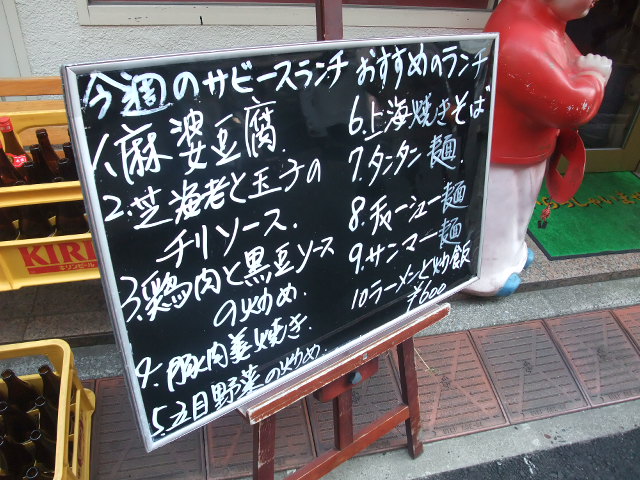 今週のサービスランチ
1.麻婆豆腐.
2.芝海老と玉子の
チリソース.
3.鶏肉と黒豆ソース
の炒め.
4.豚肉姜焼き.
5.五目野菜の炒め.
おすすめのランチ
6.上海焼きそば
7.タンタン麺
8.チャーシュー麺
9.サンマー麺
10.ラーメンと炒飯
¥600
KIRIN
キリンビール